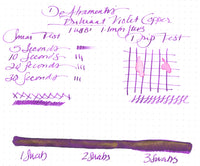 De Atramentis
Brilliant Violet Copper
Smear Test
Drip Test
5 Seconds
10 Seconds
20 Seconds
30 Seconds
1 Swab
2 Swabs
3 Swabs